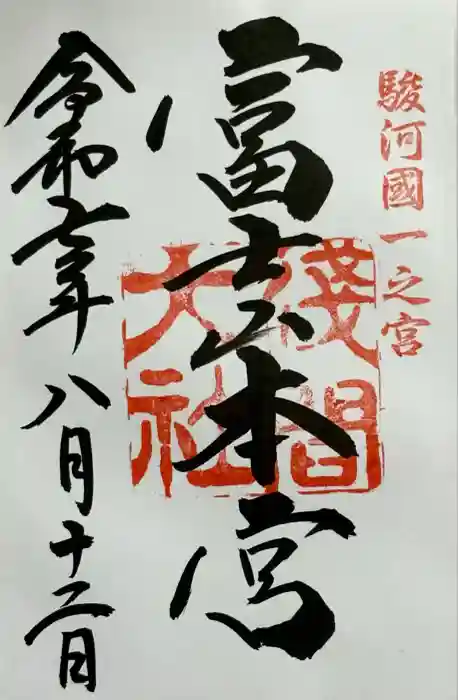 駿河國一之宮
富士山本宮
淺間
大社
令和七年八月十二日